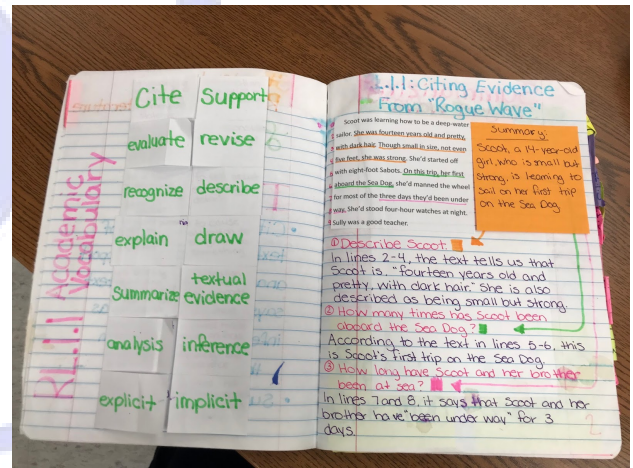 RL.1.1 Academic
Vocabulary
Cite Support
evaluate revise
recognize describe
explain draw
Summarize textual
evidence
analysis inference
explicit implicit
1.1.1: Citing Evidence
From "Rogue Wave"
Scoot was learning how to be a deep-water
sailor. She was fourteen years old and pretty,
with dark hair. Though small in size, not even
five feet, she was strong. She'd started off
with eight-foot Sabots. On this trip, her first
aboard the Sea Dog, she'd manned the wheel
for most of the three days they'd been under
way. She'd stood four-hour watches at night.
Sully was a good teacher.
Summary:
Scoot, a 14-year-old
girl, who is small but
strong, is learning to
sail on her first trip
on the Sea Dog
① Describe Scoot.
In lines 2-4, the text tells us that
Scoot is, "fourteen years old and
pretty, with dark hair." She is also
described as being small but strong.
② How many times has Scoot been
aboard the Sea Dog?
According to the text in lines 5-6, this
is Scoot's first trip on the Sea Dog.
③ How long have Scoot and her brother
been at sea?
In lines 7 and 8, it says that Scoot and her
brother have "been under way" for 3
days.